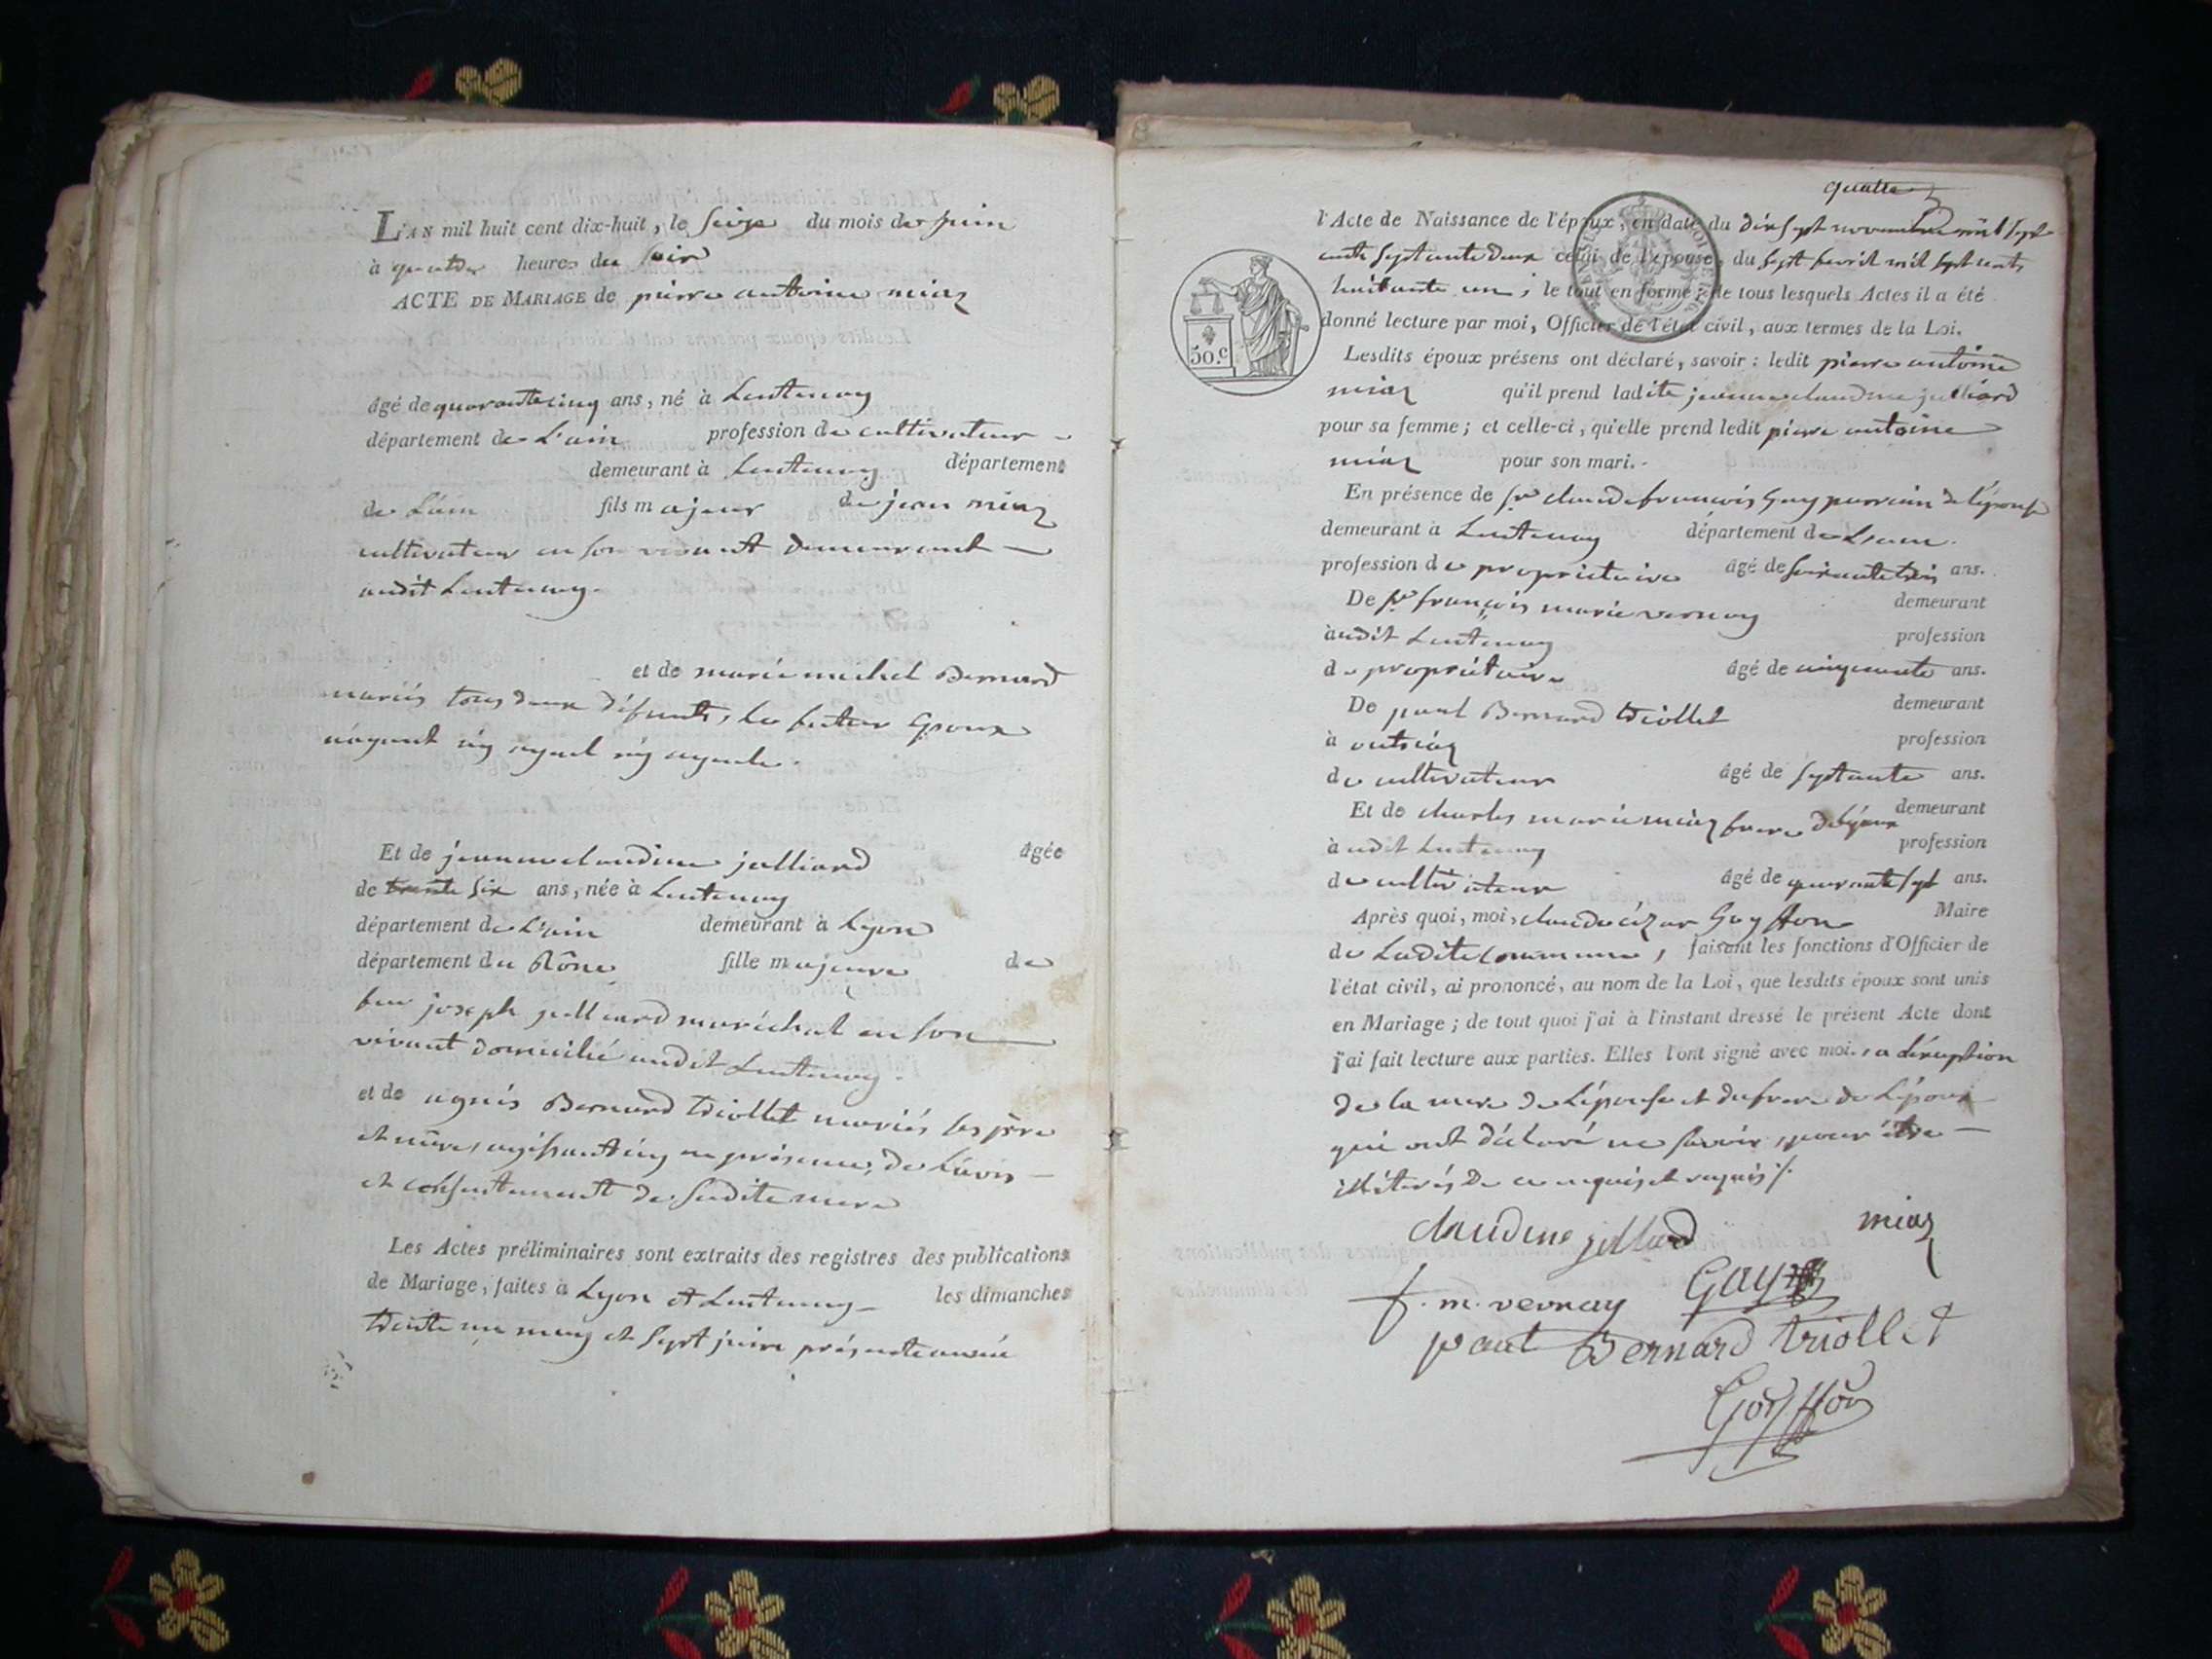 L'AN mil huit cent dix-huit, le seize du mois de juin
à quatre heures du soir
ACTE DE MARIAGE de pierre antoine miaz
âgé de quarante cinq ans, né à Lentenay
département de L'ain profession de cultivateur
demeurant à Lentenay département
de L'ain fils majeur de jean miaz
cultivateur en son vivant demeurant
audit Lentenay.
et de marie michel Bernard
mariés tous deux défunts, le futur Epoux
n'ayant ny ayeul ny ayeule.
Et de jeanne claudine julliard âgée
de trente six ans, née à Lentenay
département de L'ain demeurant à Lyon
département du Rône fille majeure de
feu joseph julliard maréchal en son
vivant domicilié audit Lentenay.
et de agnès Bernard triollet mariés ses père
et mère, agissant icy en présence, de l'avis
et consentement de sadite mere
Les Actes préliminaires sont extraits des registres des publications
de Mariage, faites à Lyon et Lentenay les dimanches
trente un may et sept juin présente année
quatre
l'Acte de Naissance de l'époux, en date du dix sept novembre mil sept
cents septante deux celui de l'épouse, du sept fevril mil sept cents
huitante un; le tout en forme; de tous lesquels Actes il a été
donné lecture par moi, Officier de l'état civil, aux termes de la Loi.
50.c
Lesdits époux présens ont déclaré, savoir: ledit pierre antoine
miaz qu'il prend ladite jeanne claudine julliard
pour sa femme; et celle-ci, qu'elle prend ledit pierre antoine
miaz pour son mari.
En présence de sr claude françois Guy parrain de l'épouse
demeurant à Lentenay département de L'ain.
profession de propriétaire âgé de soixante trois ans.
De sr françois marie vernay demeurant
à audit Lentenay profession
de propriétaire âgé de cinquante ans.
De paul Bernard triollet demeurant
à outriaz profession
de cultivateur âgé de septante ans.
Et de charles marie miaz frere de l'époux demeurant
à audit Lentenay profession
de cultivateur âgé de quarante sept ans.
Après quoi, moi, claude cézar Goyffon Maire
de Ladite commune, faisant les fonctions d'Officier de
l'état civil, ai prononcé, au nom de la Loi, que lesdits époux sont unis
en Mariage; de tout quoi j'ai à l'instant dressé le présent Acte dont
j'ai fait lecture aux parties. Elles l'ont signé avec moi, a l'exception
de la mere de L'épouse et du frere de L'époux
qui ont déclaré ne savoir, pour être
illétérés de ce enquis et requis
claudine jullard miaz
f. m. vernay Guy
paul Bernard triollet
Goyffon